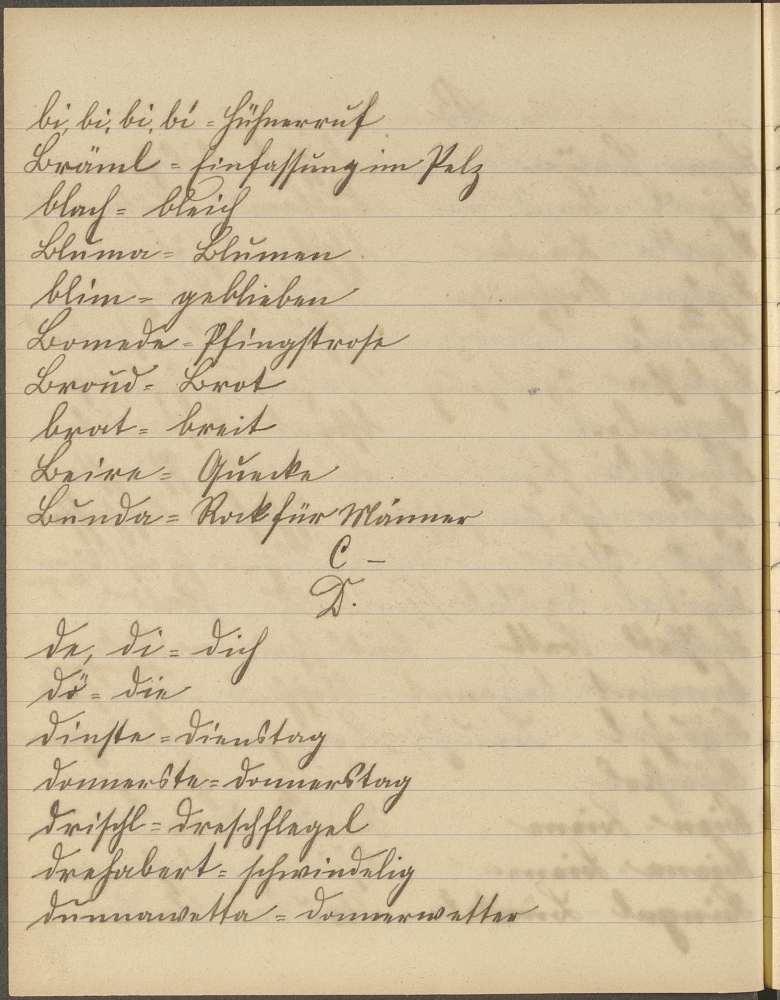 bi, bi, bi, bi = Hühnerruf
Bräml = Einfassung im Pelz
blach = bleich
Bluma = Blumen
blim = geblieben
Bomede = Pfingstrose
Broud = Brot
brat = breit
Beire = Quecke
Bunda = Rock für Männer
C –
D.
de, di = dich
dö = die
dinste = Dienstag
donnerste = Donnerstag
drischl = Dreschflegel
drehabert = schwindelig
dunnawetta = Donnerwetter